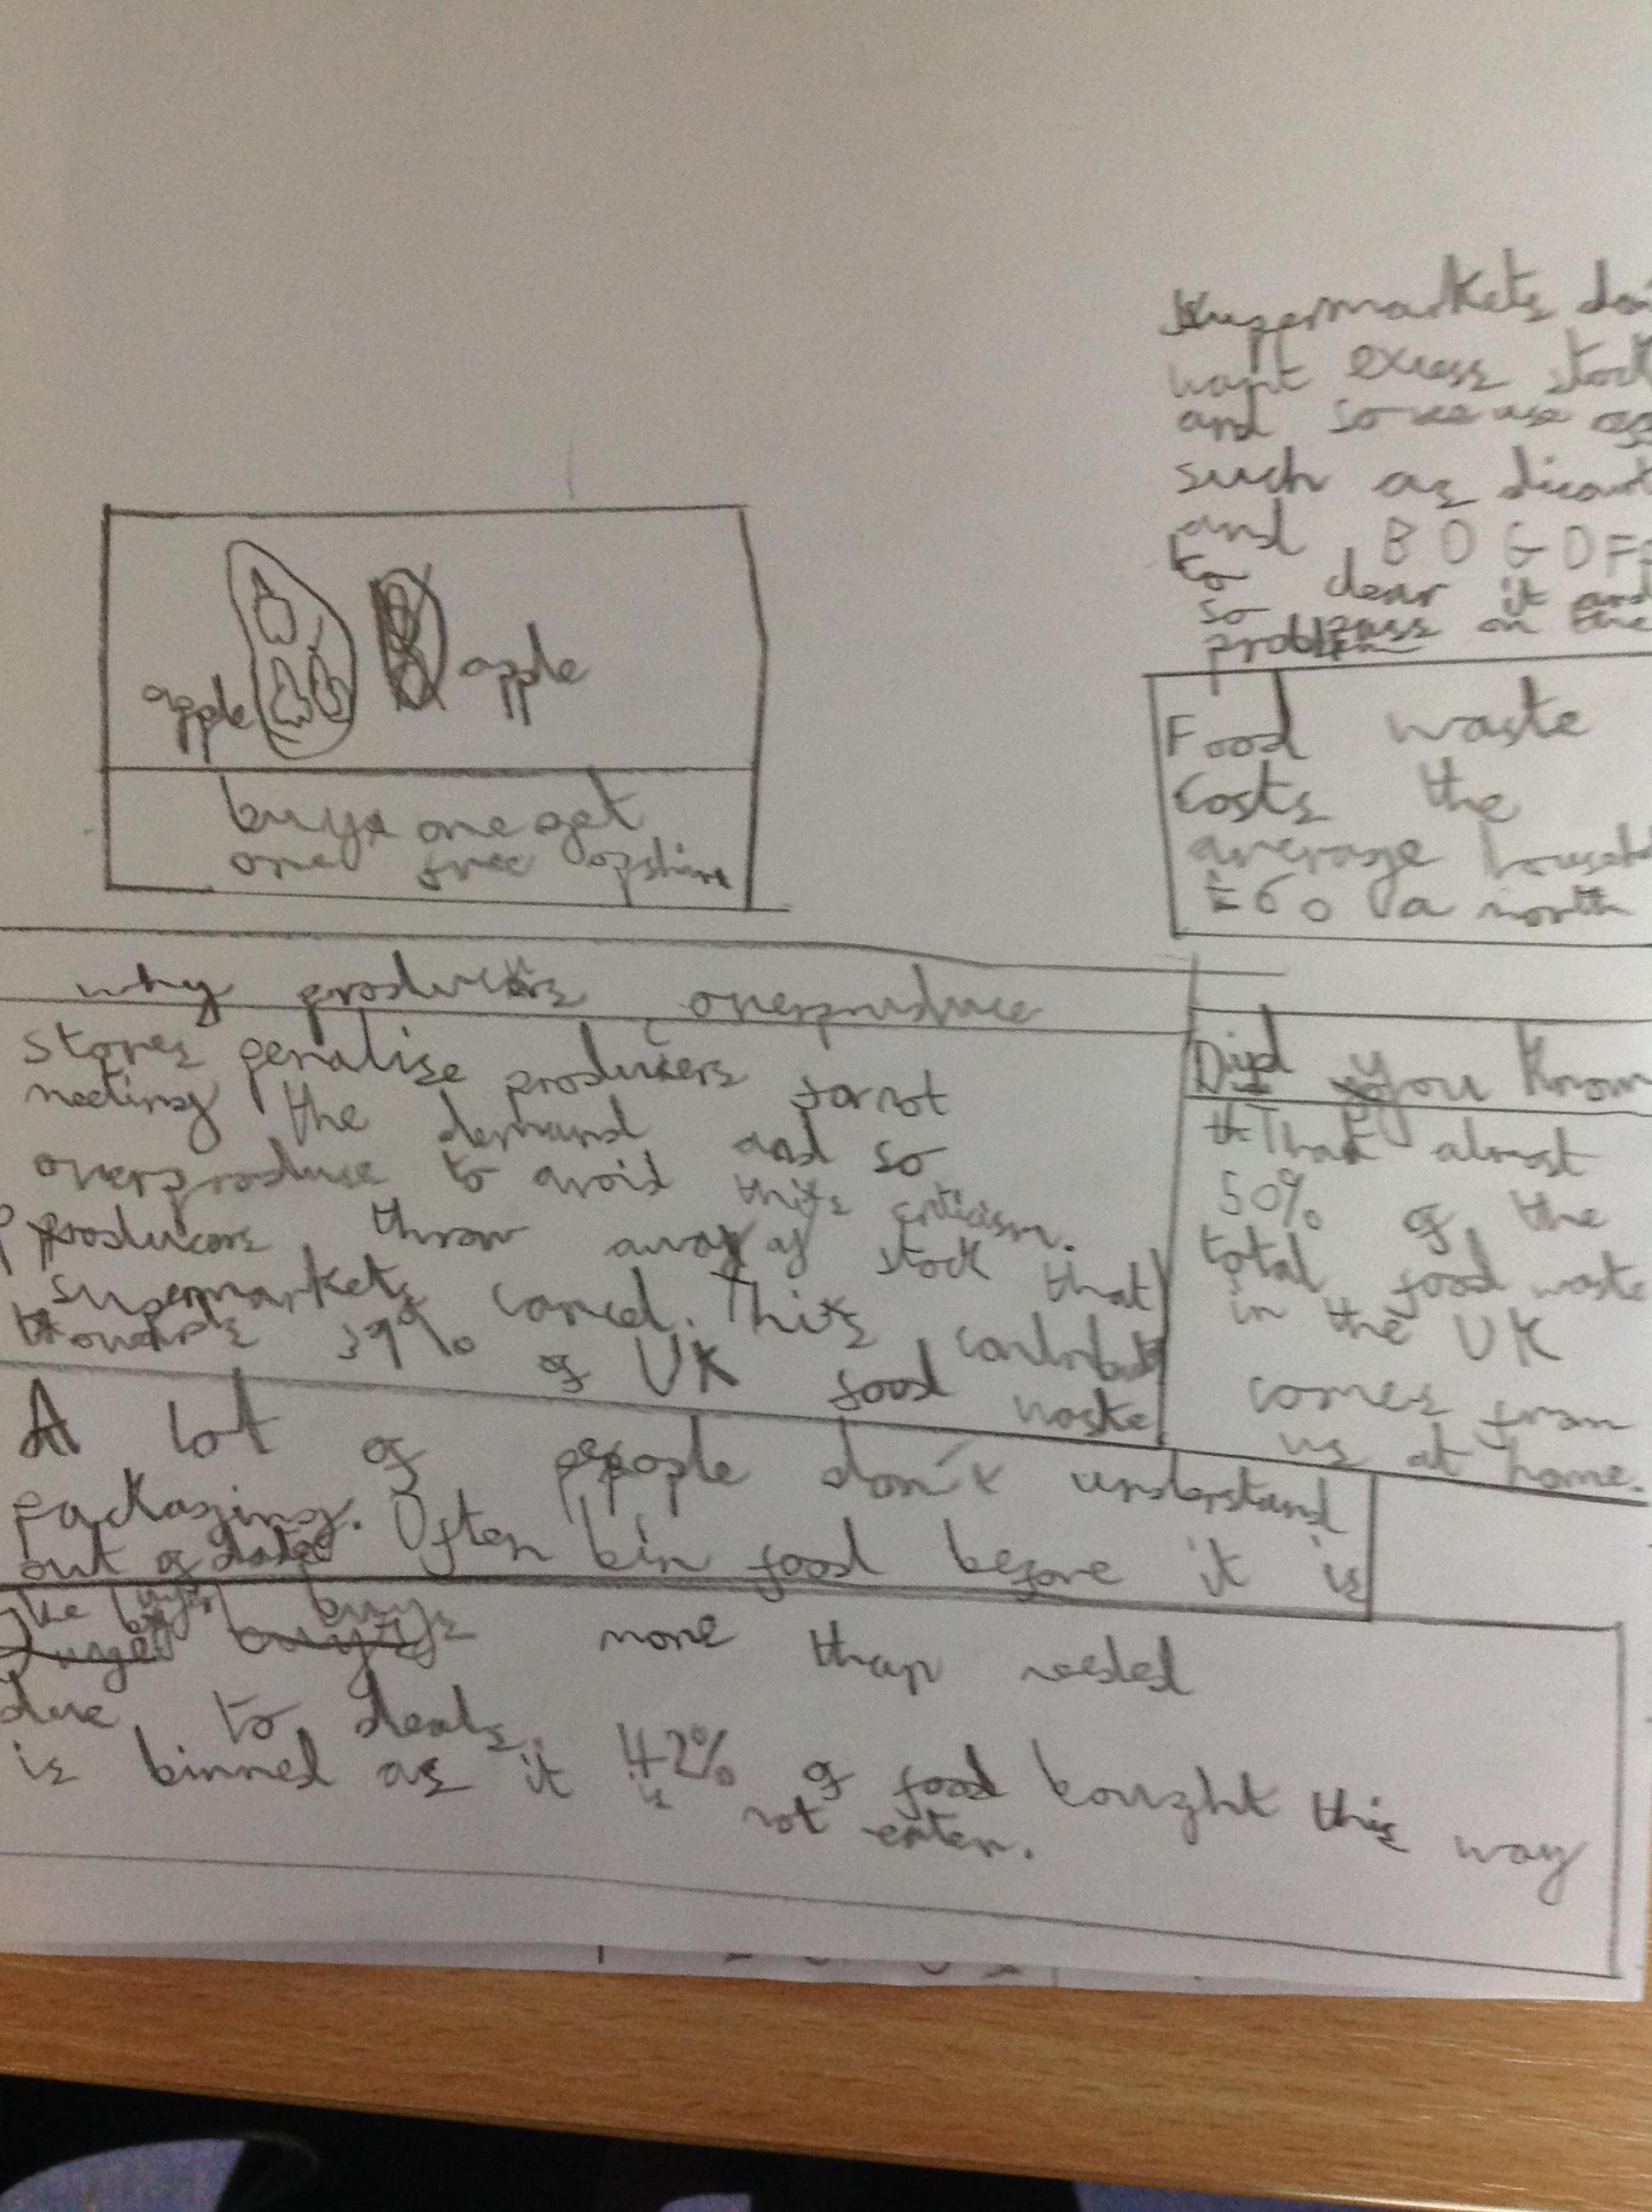 Supermarkets don
want excess stock
and so we use
such as
and BOGOFs
to clear it and
so pass on the
problem
apple
apple
buy one get
one free
Food waste
costs the
average househ
£60 a month
why producers overproduce
stores penalise producers for not
meeting the demand and so
overproduce to avoid this criticism.
producers throw away stock that
supermarkets cancel. This contribut
towards 39% of UK food waste
Did you know
That almost
50% of the
total food waste
in the UK
comes from
us at home.
A lot of people don't understand
packaging. Often bin food before it is
out of date
buys more than needed
due to deals. 42% of food bought this way
is binned as it is not eaten.